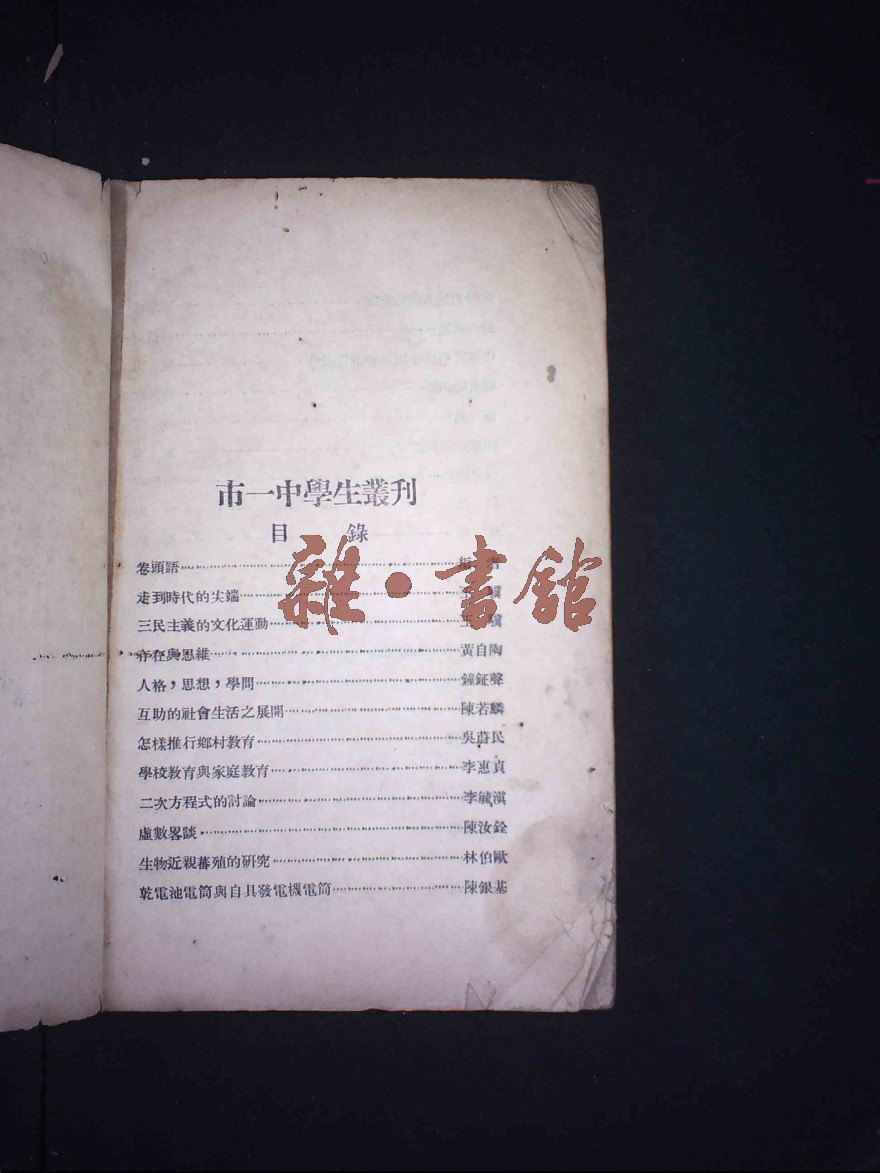 市一中學生叢刊
目 錄
卷頭語 者
走到時代的尖端 王
三民主義的文化運動 王
存在與思維 黃自陶
人格，思想，學問 鐘鉦聲
互助的社會生活之展開 陳若麟
怎樣推行鄉村教育 吳蔚民
學校教育與家庭教育 李惠貞
二次方程式的討論 李毓滇
虛數畧談 陳汝銓
生物近親蕃殖的研究 林伯歐
乾電池電筒與自具發電機電筒 陳銀基
雜·書館